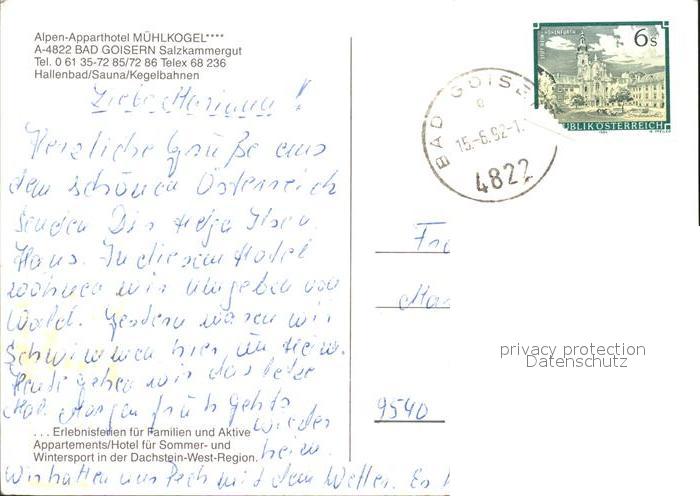 Alpen-Apparthotel MÜHLKOGEL****
A-4822 BAD GOISERN Salzkammergut
Tel. 0 61 35-72 85/72 86 Telex 68 236
Hallenbad/Sauna/Kegelbahnen
Liebe Mariann !
Herzliche Grüße aus
dem schönen Österreich
senden Dir Helga
Hans. In diesem Hotel
wohnen wir umgeben von
Wald. Gestern waren wir
Schwimmen hier im
Heute gehen wir das letzte
Mal. Morgen früh gehts
wieder
heim.
Wir hatten uns Pech mit dem Wetter. Es
... Erlebnisferien für Familien und Aktive
Appartements/Hotel für Sommer- und
Wintersport in der Dachstein-West-Region.
BAD GOISE
15.-6.92-1
4822
6 S
STIFT REIN-HOHENFURTH
UBLIK ÖSTERREICH
Fr
Mar
9540
privacy protection
Datenschutz